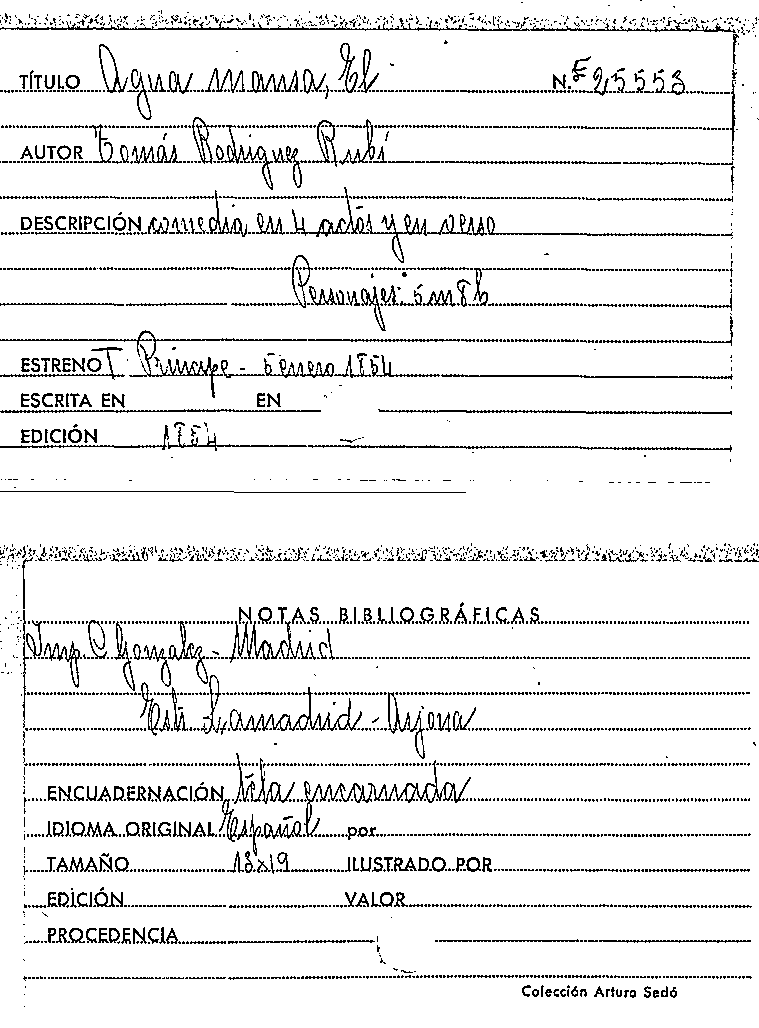 TÍTULO Agua mansa, El N.º 25553
AUTOR Tomás Rodriguez Rubí
DESCRIPCIÓN comedia en 4 actos y en verso
Personajes: 5 m 8 h
ESTRENO T. Principe - 5 enero 1854
ESCRITA EN EN
EDICIÓN 1854
NOTAS BIBLIOGRÁFICAS
Imp. C. Gonzalez - Madrid
Estr. Lamadrid - Arjona
ENCUADERNACIÓN tela encarnada
IDIOMA ORIGINAL Español por
TAMAÑO 13x19 ILUSTRADO POR
EDICIÓN VALOR
PROCEDENCIA
Colección Arturo Sedó